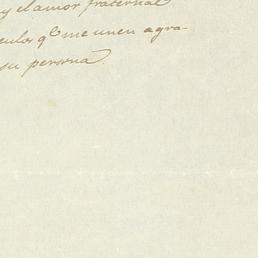 y el amor fraternal
culos qᵉ me unen a gra-
su persona.